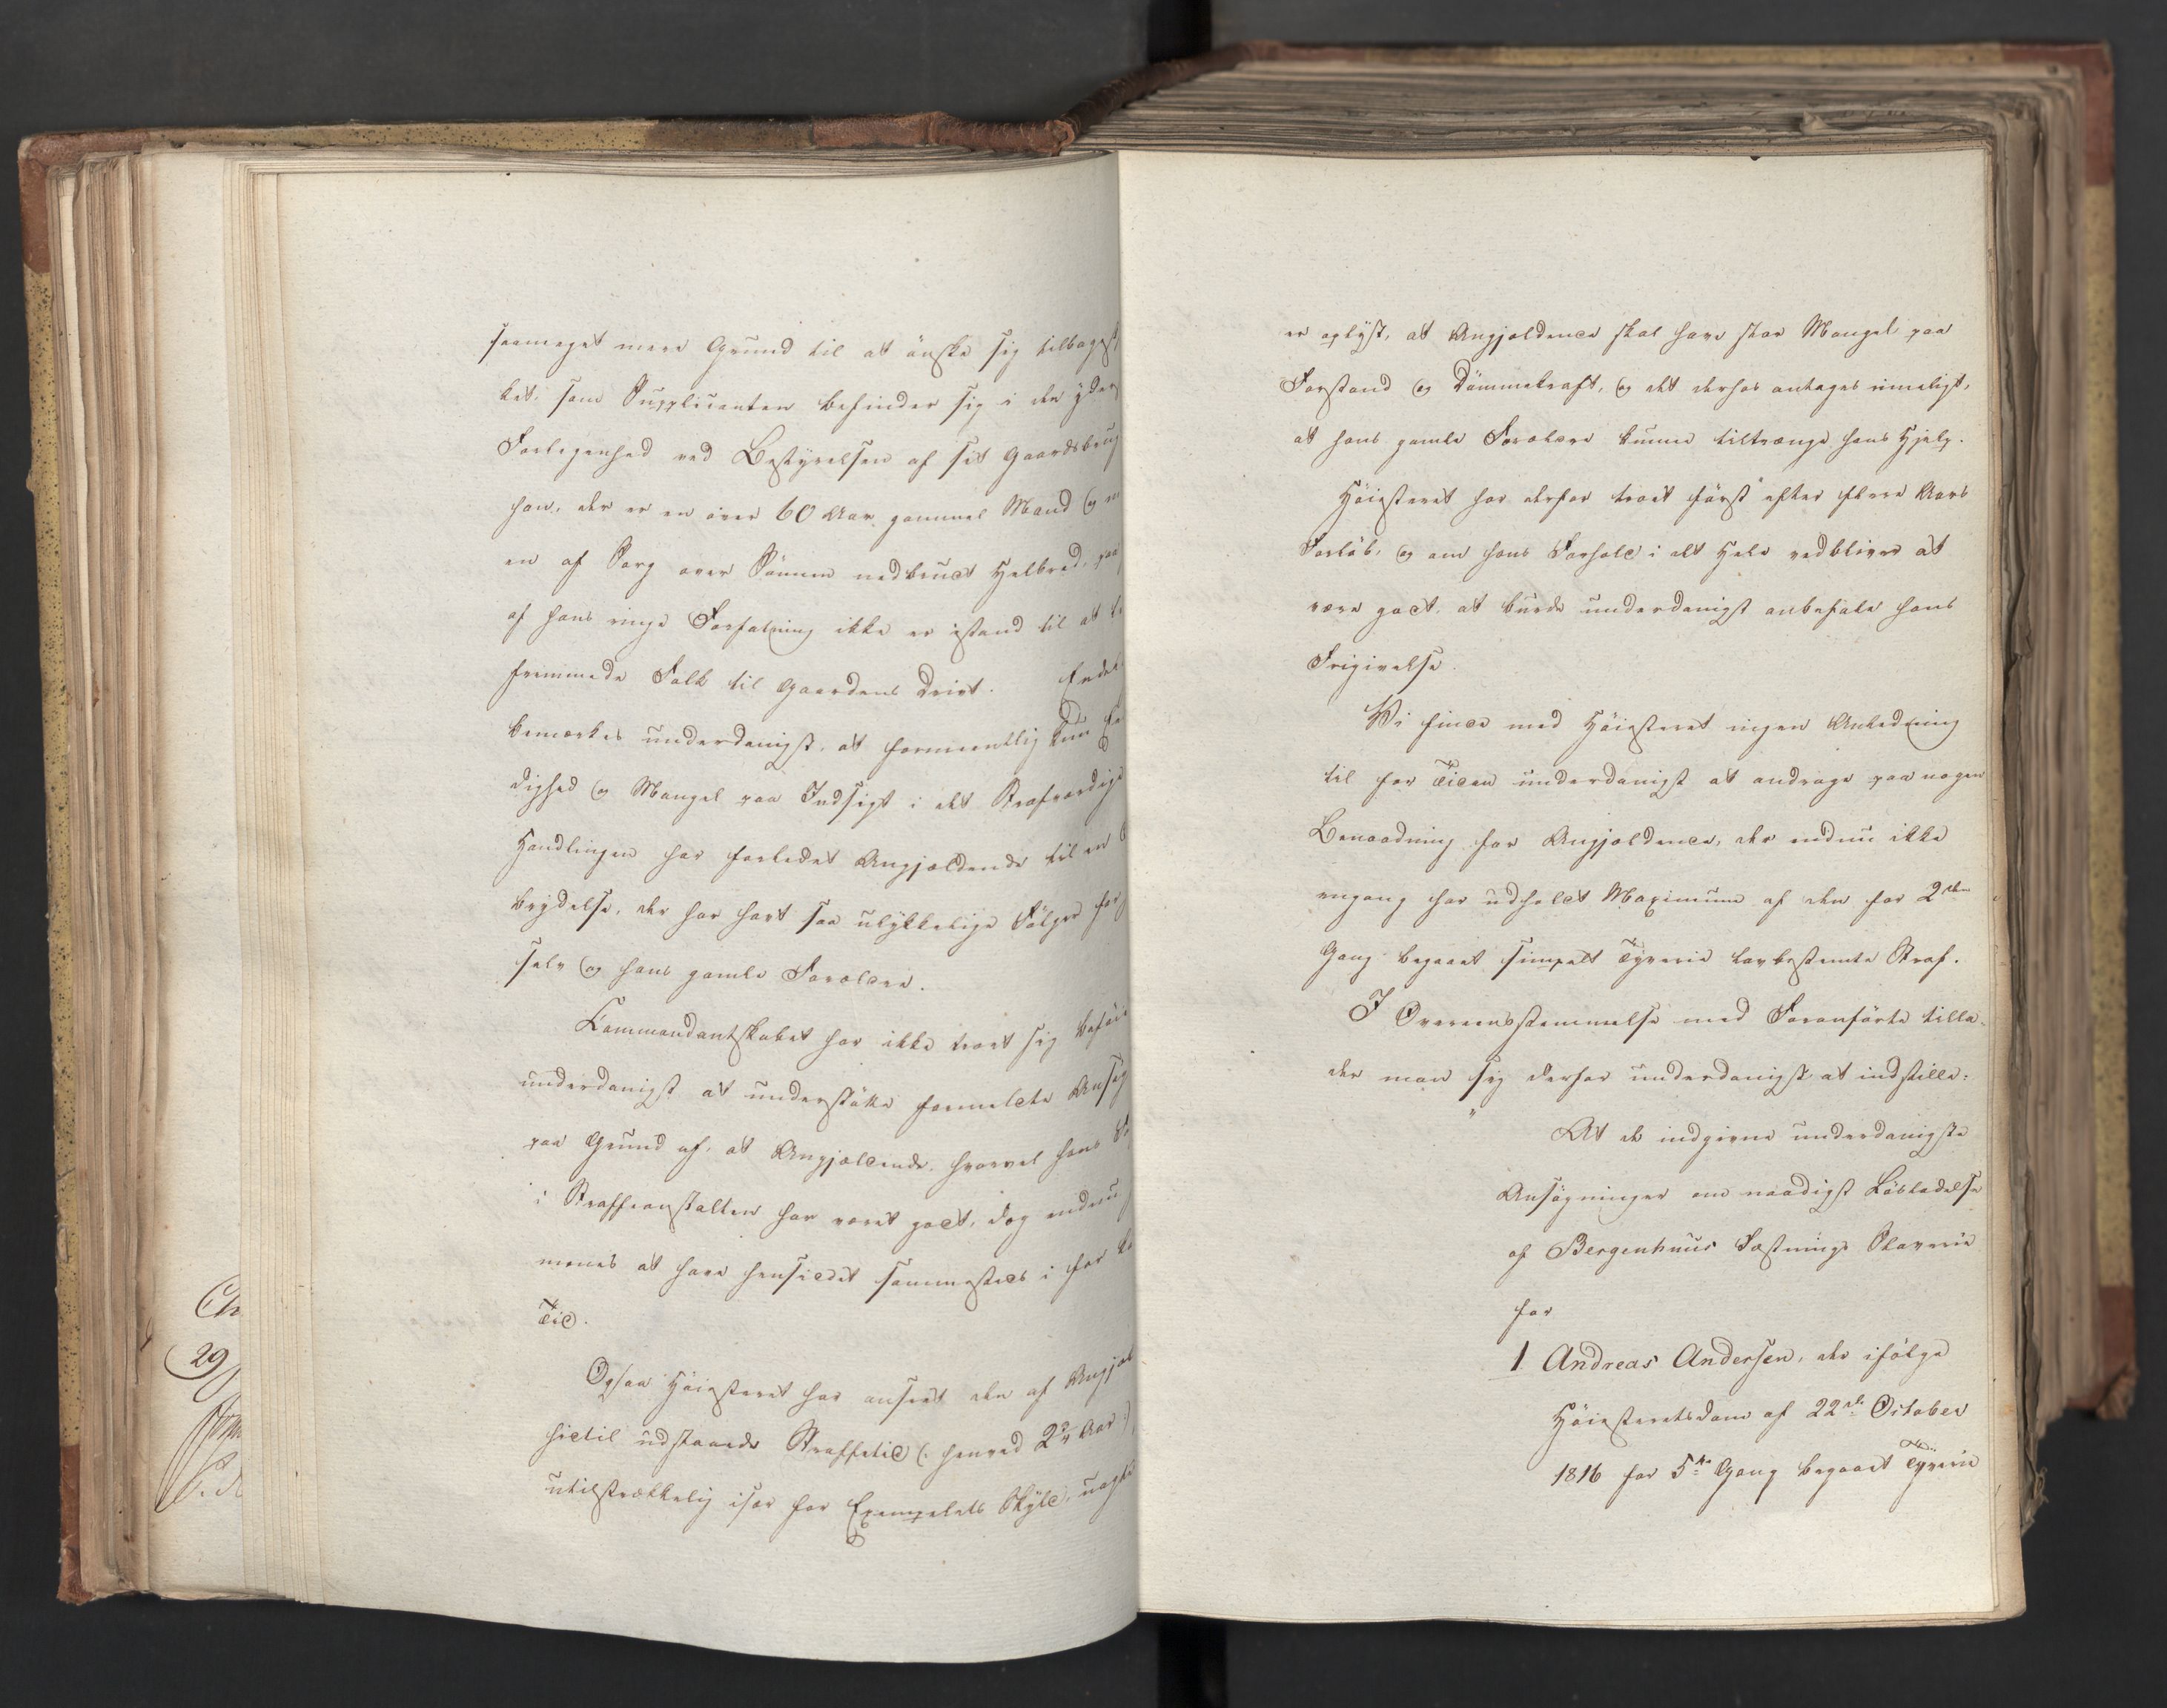 saameget mere Grund til at önske sig tilbagest
ket, som Supplicanten befinder sig i den yder
Forlegenhed ved Bestyrelsen af sit Gaardsbrug
han, der er en over 60 Aar gammel Mand og
en af Sorg over Sönnen nedbrudt Helbred, paa
af hans ringe Forfatning ikke er istand til at
fremmede Folk til Gaardens Drivt. Endel
bemærkes underdanigst, at formeentlig kun
dighed og Mangel paa Indsigt i det Strafværdige
Handlingen har forledet Angjældende til en
brydelse, der har havt saa ulykkelige Fölger for
selv og hans gamle Forældre.
Commandantskabet har ikke troet sig beföie
underdanigst at understötte formeldte Ansög
paa Grund af, at Angjældende, hvorvel hans
i Straffeanstalten har været godt, dog endnu
menes at have hensiddet sammesteds i for
Tid.
Ogsaa Höiesteret har anseet den af Angjæl
hidtil udstaaede Straffetid (: henved 2¾ Aar :)
utilstrækkelig især for Exempelets Skyld, uagt
er oplyst, at Angjældende skal have stor Mangel paa
Forstand og Dömmekraft, og det derhos antages rimeligt,
at hans gamle Forældre kunne tiltrænge hans Hjelp.
Höiesteret har derfor troet först efter flere Aars
Forlöb, og om hans Forhold i det Hele vedbliver at
være godt, at burde underdanigst anbefale hans
Frigivelse.
Vi finde med Höiesteret ingen Anledning
til for Tiden underdanigst at andrage paa nogen
Benaadning for Angjældende, der endnu ikke
engang har udholdt Maximum af den for 2den
Gang begaaet simpelt Tyverie lovbestemte Straf.
I Overeensstemmelse med Foranförte tilla-
der man sig derfor underdanigst at indstille:
At de indgivne underdanigste
Ansögninger om naadigst Lösladelse
af Bergenhuus Fæstnings Slaverie
for
1 Andreas Andersen, der ifölge
Höiesteretsdom af 22de October
1816 for 5te Gang begaaet Tyverie
Ch
29